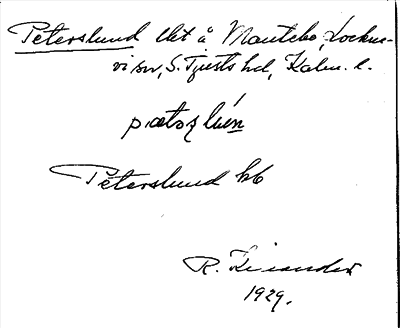 Peterslund lht å Mantebo, Lockne-
vi sn, S. Tjusts hd, Kalm. l.
Peterslund kb
R. Kiander
1929.